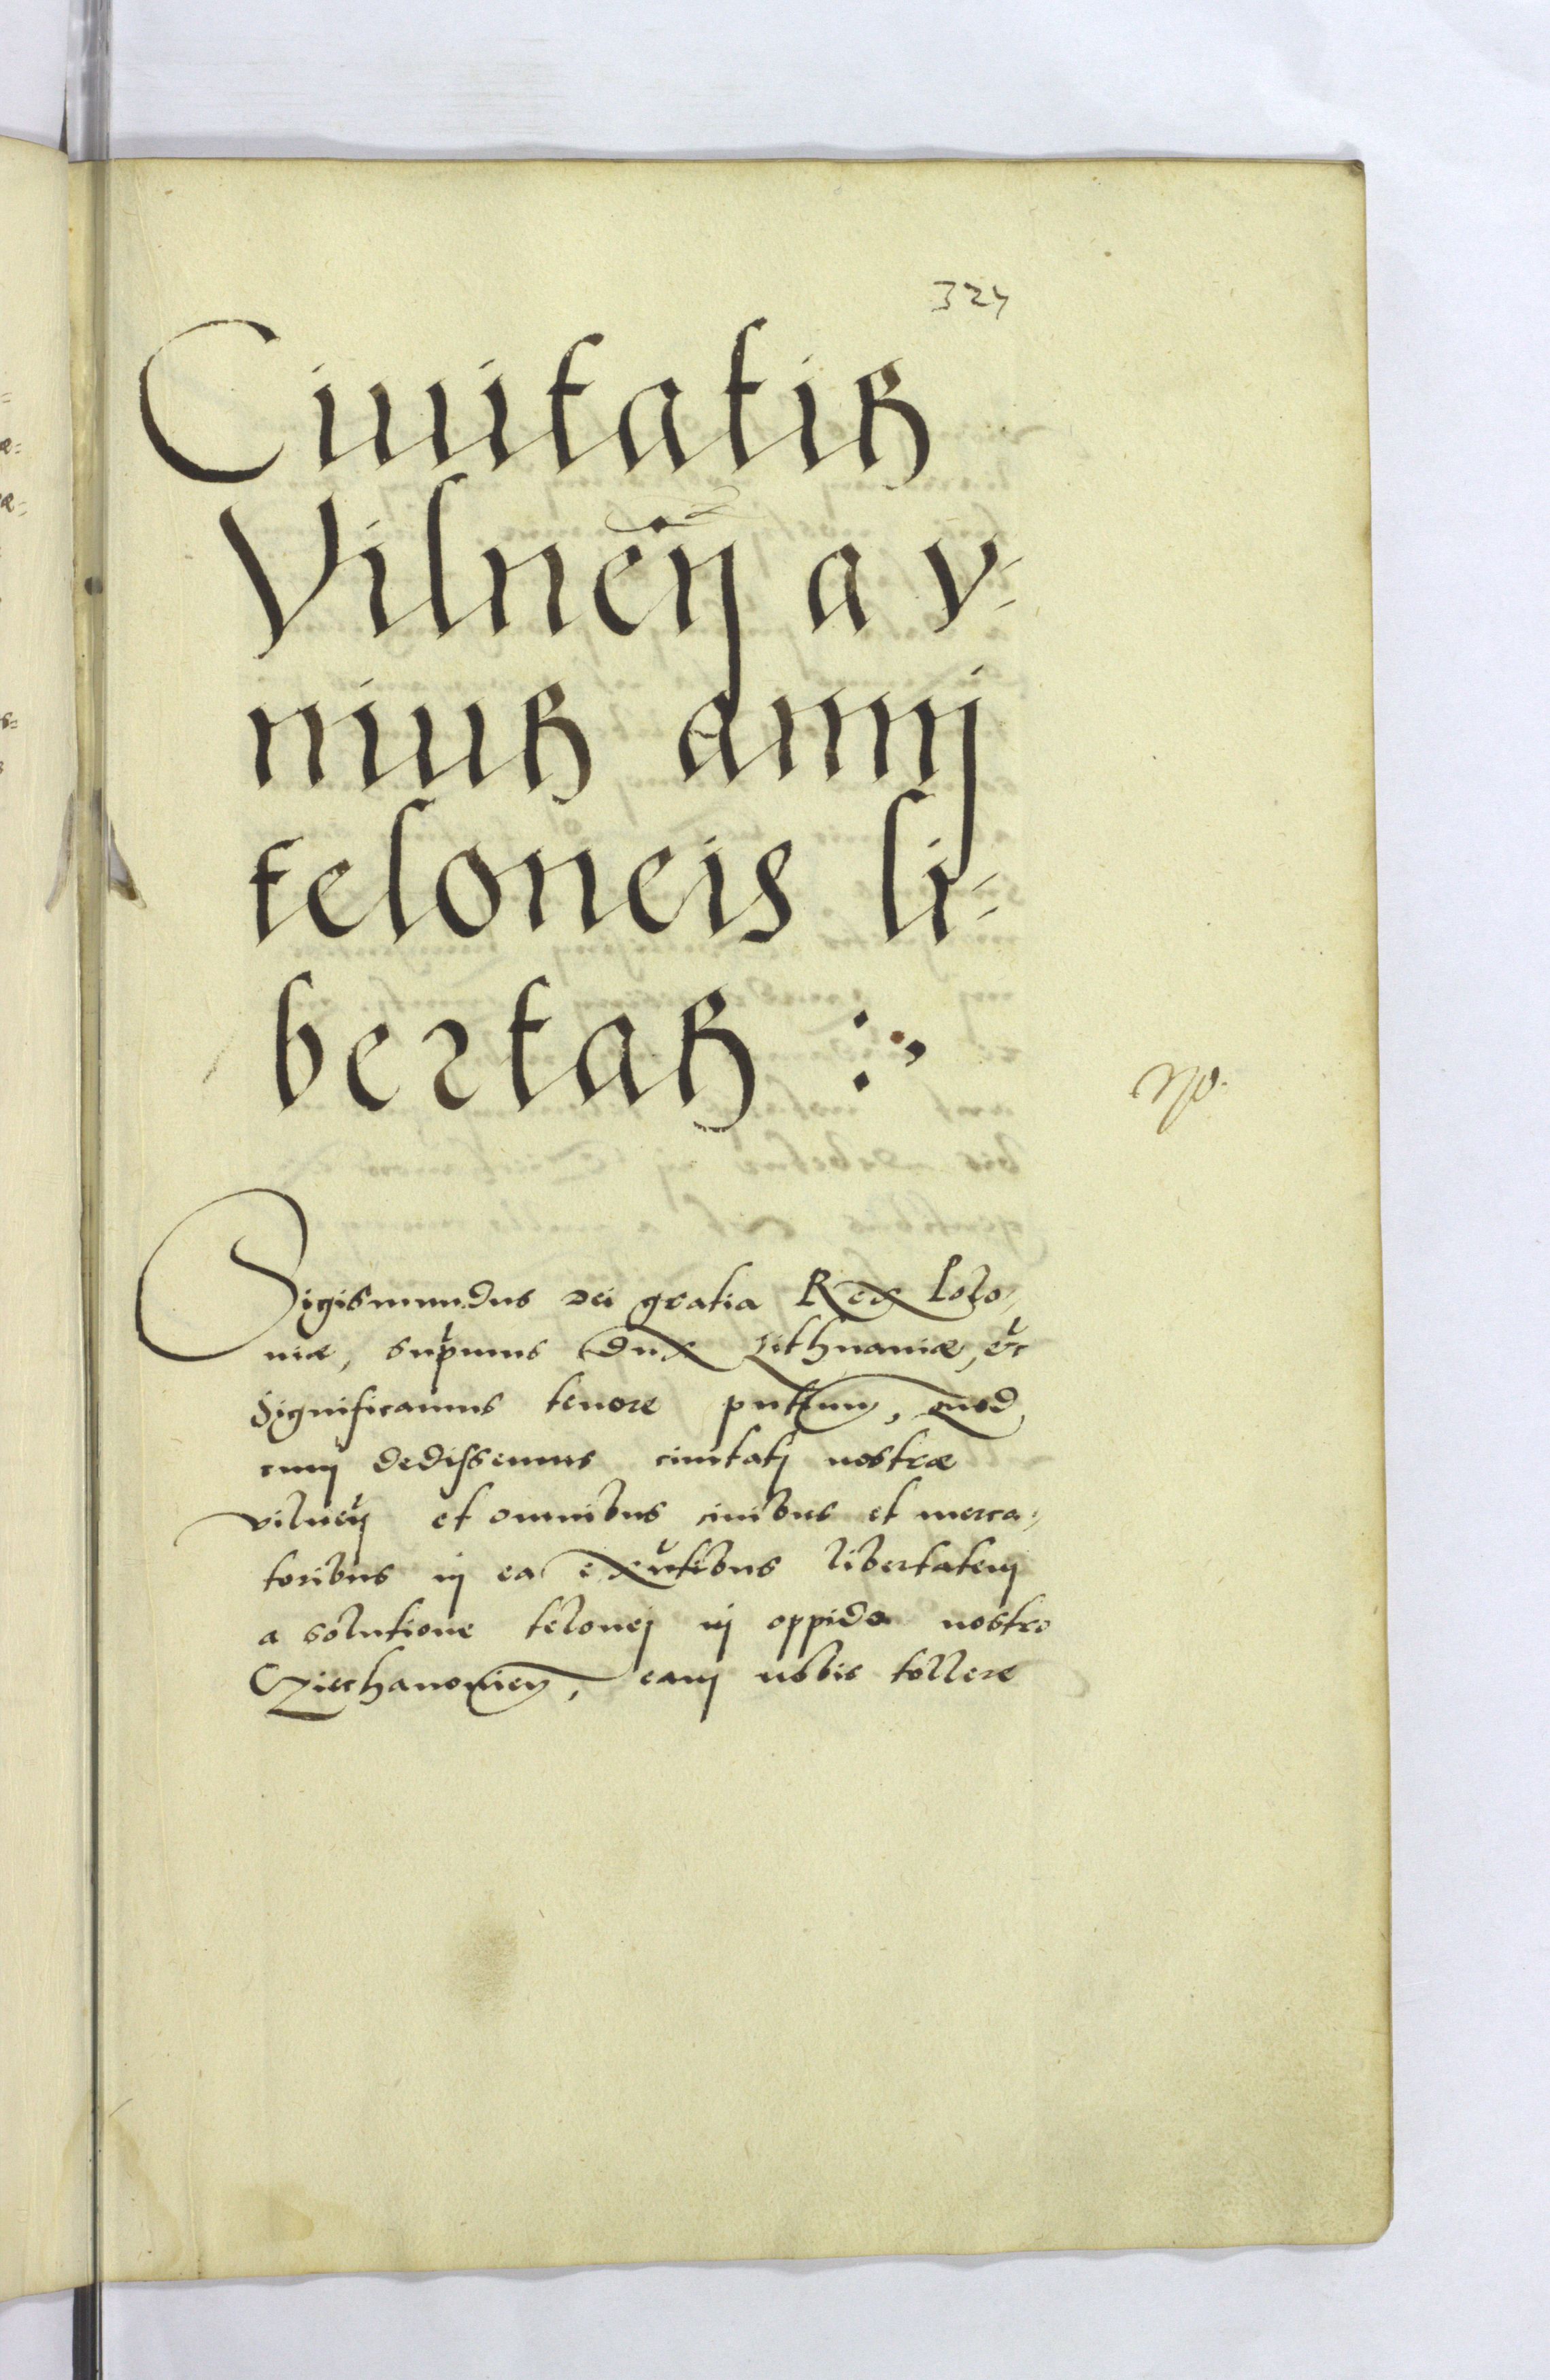 324
Ciuitatis
Vilneñ a v-
nius annj
teloneis li-
bertas :,
No.
Sigismundus Dei gratia Rex Polo,
niæ, supmus Dux Lithuaniæ, &c
Significamus tenore pntium, quod
cum dedissemus ciuitatj nostræ
vilneñ et omnibus ciuibus et merca,
toribus in ea exñtibus libertatem
a solutione telonej in oppido nostro
Cziechanowien, eam nobis tollere